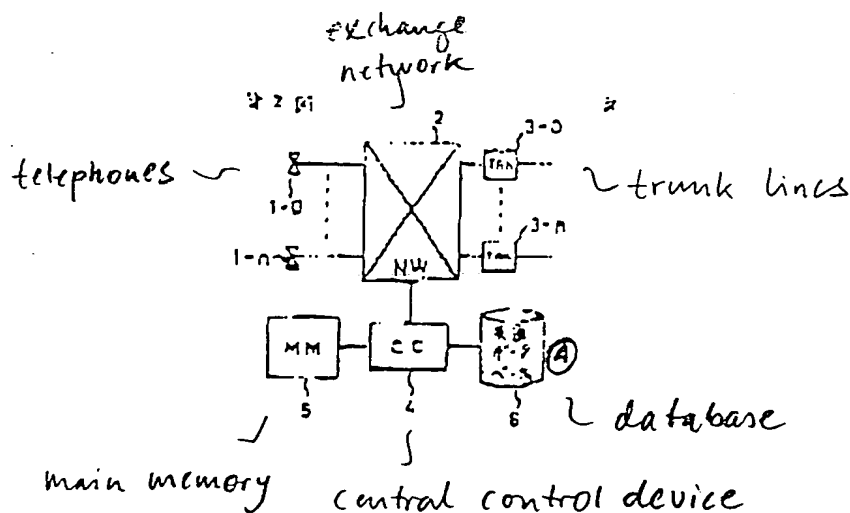 exchange
network
2
3-0
telephones
TRK
trunk lines
1-0
3-n
1-n
NW
MM
CC
A
5
4
6
database
main memory
central control device